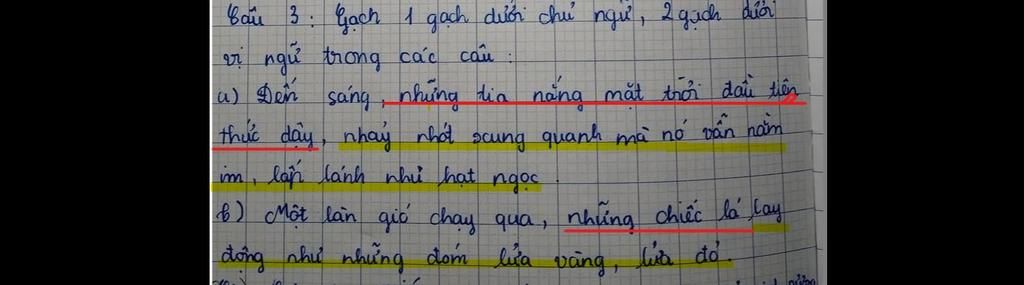 Câu 3: Gạch 1 gạch dưới chủ ngữ, 2 gạch dưới
vị ngữ trong các câu:
a) Đến sáng, những tia nắng mặt trời đầu tiên
thức dậy, nhảy nhót xung quanh mà nó vẫn nằm
im, lấp lánh như hạt ngọc.
b) Một làn gió chạy qua, những chiếc lá lay
động như những đốm lửa vàng, lửa đỏ.